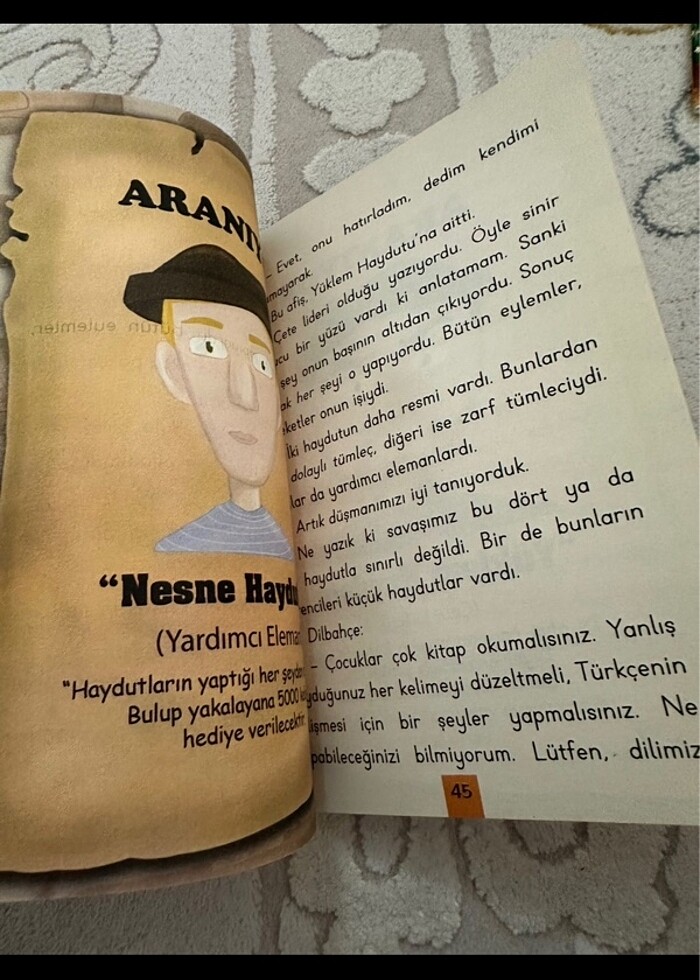 ARANIY
"Nesne Haydu
(Yardımcı Eleman
"Haydutların yaptığı her şeyden
Bulup yakalayana 5000
hediye verilecektir.
bütün eylemler,
– Evet, onu hatırladım, dedim kendimi
mayarak.
Bu afiş, Yüklem Haydutu'na aitti.
Çete lideri olduğu yazıyordu. Öyle sinir
cu bir yüzü vardı ki anlatamam. Sanki
şey onun başının altıdan çıkıyordu. Sonuç
ak her şeyi o yapıyordu. Bütün eylemler,
ketler onun işiydi.
İki haydutun daha resmi vardı. Bunlardan
dolaylı tümleç, diğeri ise zarf tümleciydi.
lar da yardımcı elemanlardı.
Artık düşmanımızı iyi tanıyorduk.
Ne yazık ki savaşımız bu dört ya da
haydutla sınırlı değildi. Bir de bunların
encileri küçük haydutlar vardı.
Dilbahçe:
– Çocuklar çok kitap okumalısınız. Yanlış
yduğunuz her kelimeyi düzeltmeli, Türkçenin
işmesi için bir şeyler yapmalısınız. Ne
pabileceğinizi bilmiyorum. Lütfen, dilimiz
45